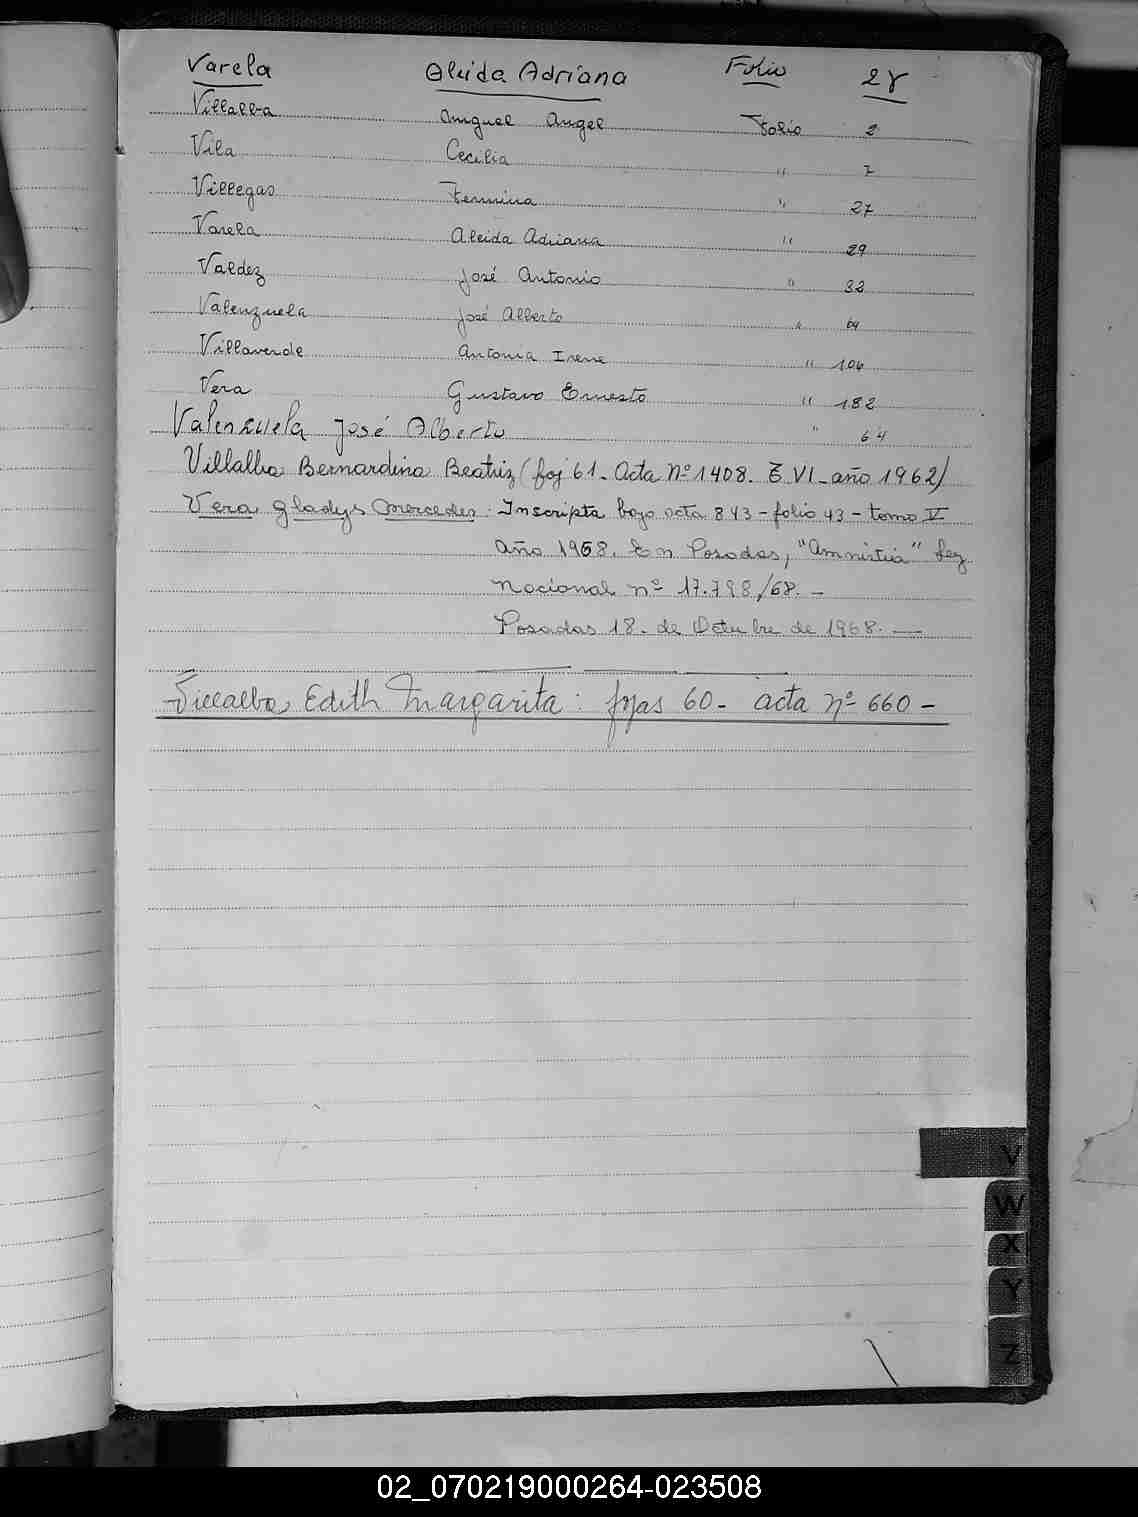 Varela Aleida Adriana Folio 28
Villalba Miguel Angel Folio 2
Vila Cecilia " 7
Villegas Fermina " 27
Varela Aleida Adriana " 29
Valdez José Antonio " 32
Valenzuela José Alberto " 64
Villaverde Antonia Irene " 106
Vera Gustavo Ernesto " 182
Valenzuela José Alberto " 64
Villalba Bernardina Beatriz (foj 61 - Acta Nº 1408. T VI - año 1962)
Vera Gladys Mercedes - Inscripta bajo acta 843 - folio 43 - tomo V
Año 1968. En Posadas, "Amnistia" Ley
Nacional nº 17.798/68. -
Posadas 18 - de Octubre de 1968. —
Villalba Edith Margarita: fojas 60 - acta nº 660 -
V
W
X
Y
Z
02_070219000264-023508